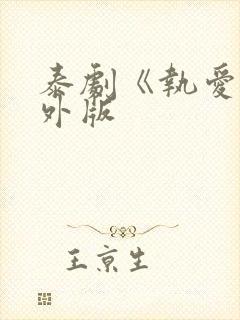 泰劇《執愛
外版
王京生